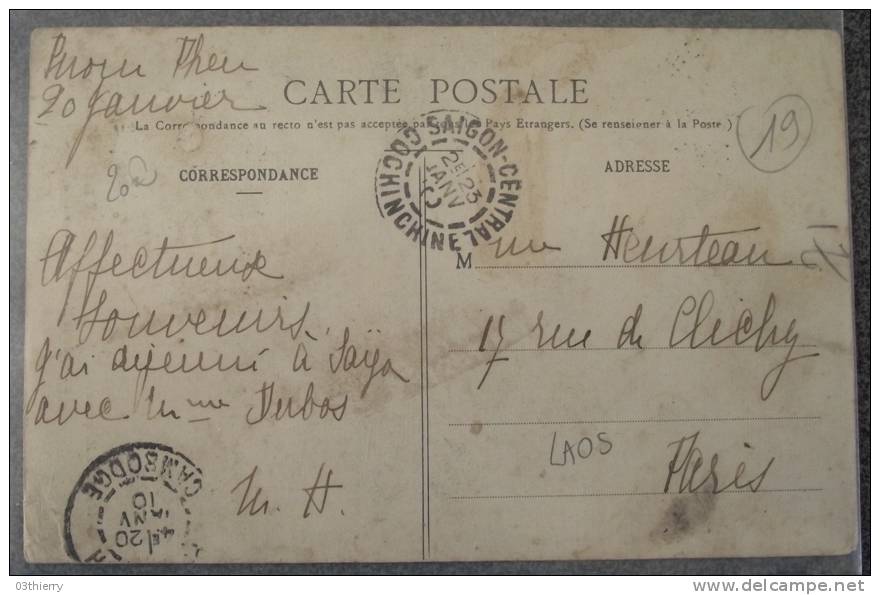 Pnom Phen
20 Janvier
CARTE POSTALE
La Correspondance au recto n'est pas acceptée par tous les Pays Etrangers. (Se renseigner à la Poste)
19
CORRESPONDANCE
ADRESSE
SAIGON-CENTRAL
COCHINCHINE
2E 23
JANV
Affectueux
souvenirs,
j'ai dejeuné à Saïgon
avec Mme Dubos
M. H.
Mme Heurteau
17 rue de Clichy
Paris
LAOS
CAMBODGE
4E 20
JANV
10
03thierry
www.delcampe.net